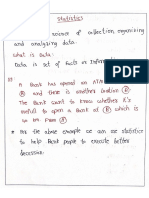 Statistics
science of collection, organizing
and analyzing data.
What is Data:
Data is set of facts or information
A Bank has opened an ATM
A and there is another location B
The Bank want to know whether it's
usefull to open a Bank at B which is
so far from A
For the above example we can use statistics
to help Bank people to create better
decession.